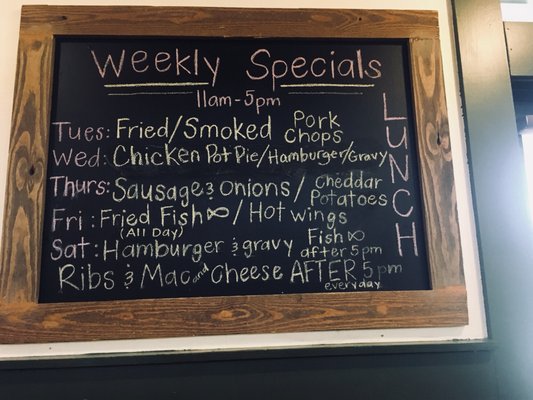 Weekly Specials
11am-5pm
Tues: Fried/Smoked Pork Chops
Wed: Chicken Pot Pie/Hamburger/Gravy
Thurs: Sausage & Onions / Cheddar Potatoes
Fri: Fried Fish ∞ / Hot wings
(All Day)
Sat: Hamburger & gravy Fish ∞ after 5pm
Ribs & Mac and Cheese AFTER 5pm
everyday
LUNCH